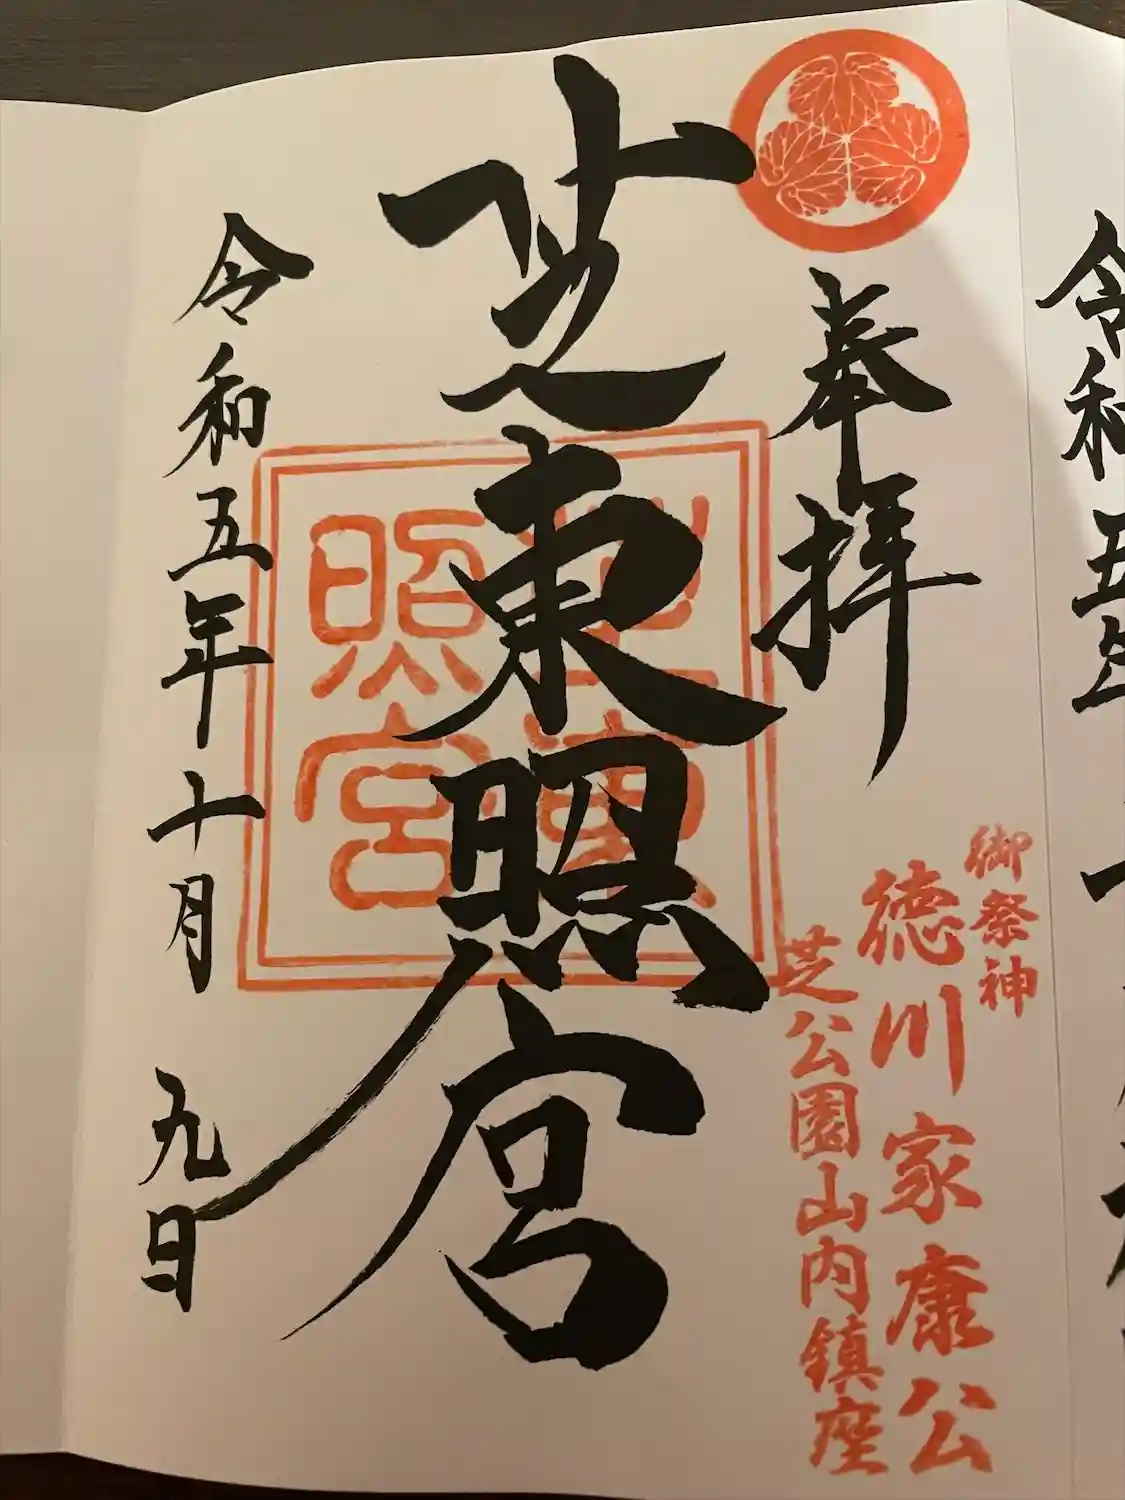 奉拝
御祭神
徳川家康公
芝公園山内鎮座
芝東照宮
芝東
照宮
令和五年十月九日
令和五年